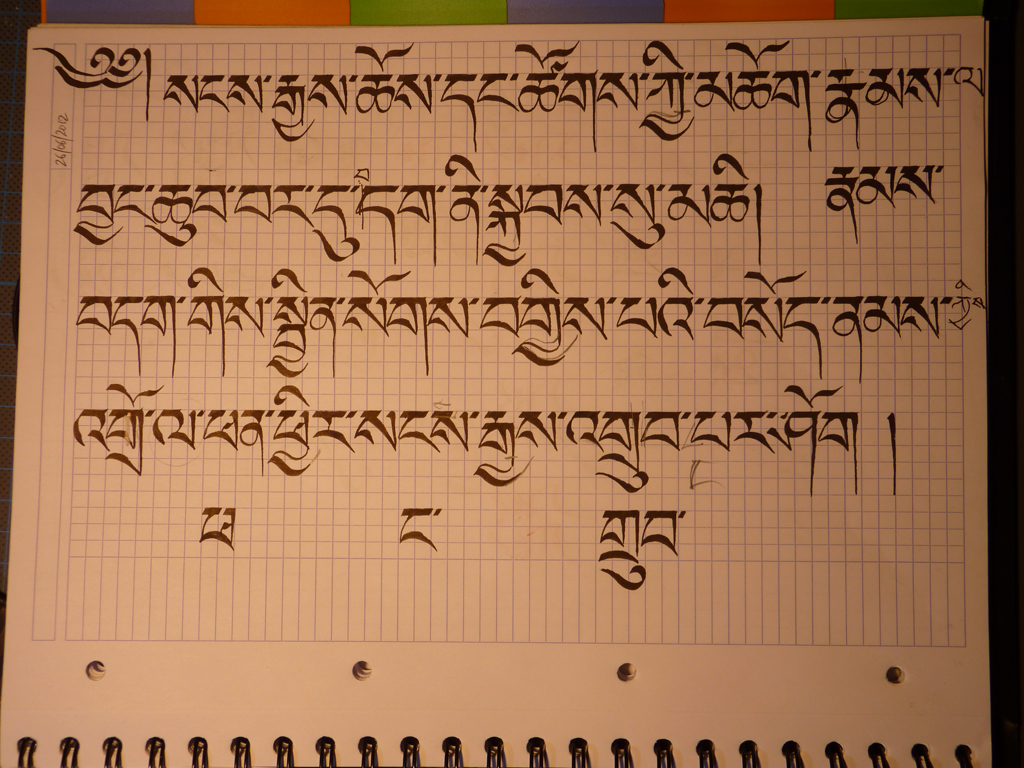 ༄༅། སངས་རྒྱས་ཆོས་དང་ཚོགས་ཀྱི་མཆོག་རྣམས་ལ
26/06/2012
བྱང་ཆུབ་བར་དུ་དག་ནི་སྐྱབས་སུ་མཆི། རྣམས་
བདག་གིས་སྦྱིན་སོགས་བགྱིས་པའི་བསོད་ནམས་ཀྱིས
འགྲོ་ལ་ཕན་ཕྱིར་སངས་རྒྱས་འགྲུབ་པར་ཤོག །
ཕ ང་ གྲུབ་